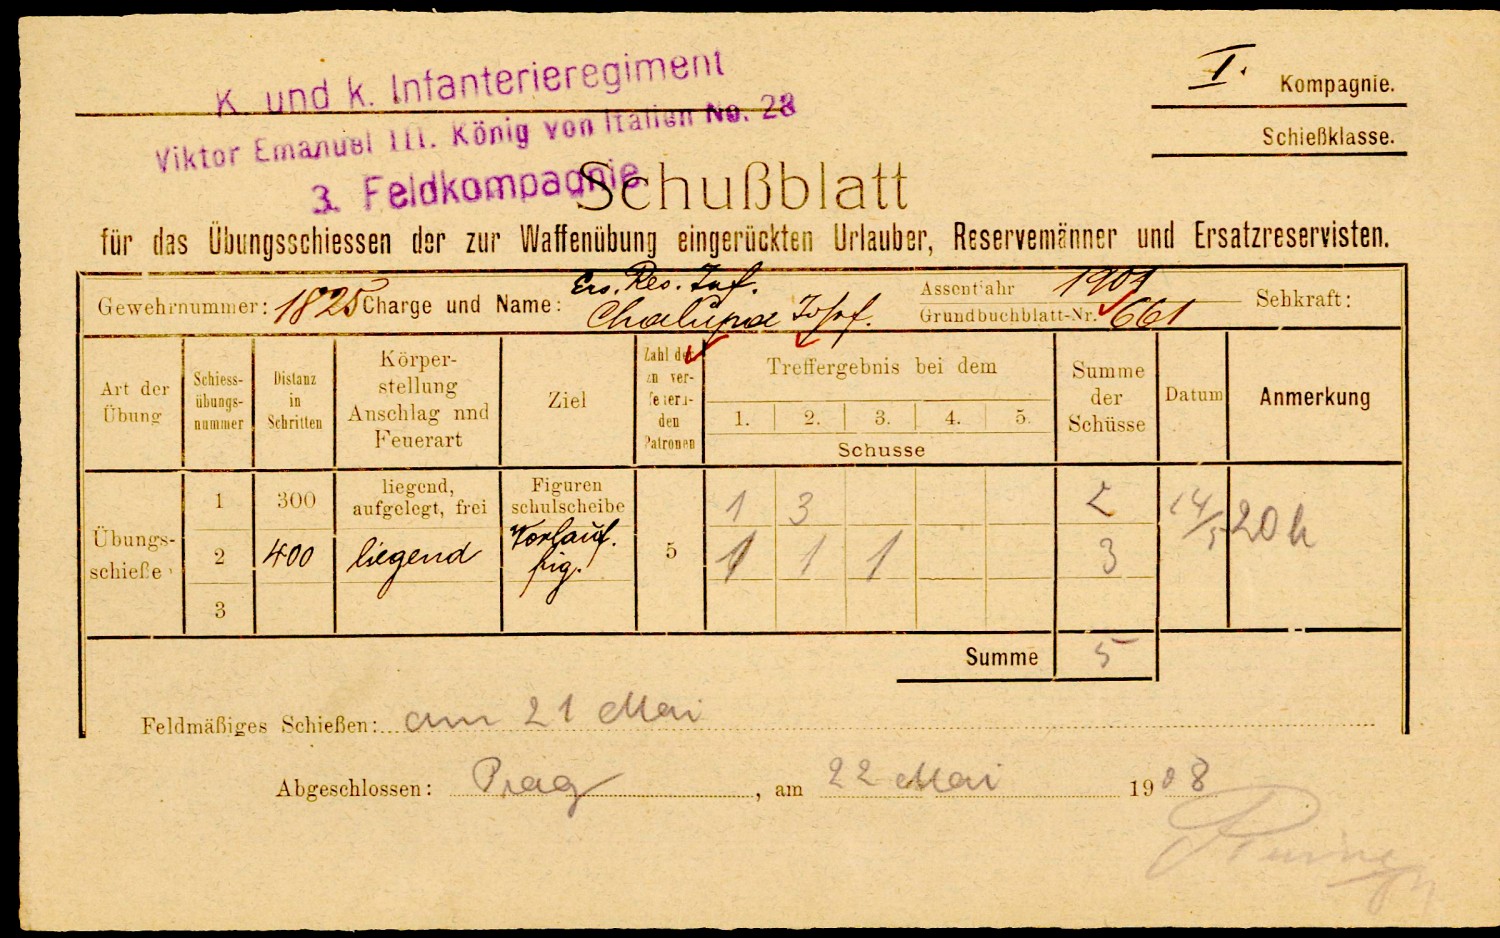 K. und k. Infanterieregiment
Viktor Emanuel III. König von Italien No. 28
3. Feldkompagnie
I. Kompagnie.
Schießklasse.
Schußblatt
für das Übungsschiessen der zur Waffenübung eingerückten Urlauber, Reservemänner und Ersatzreservisten.
Gewehrnummer: 1825 Charge und Name: Ers. Res. Inf. Chalupa Josef. Assentjahr Grundbuchblatt-Nr. 661 Sehkraft:
Art der Übung
Schiess-übungs-nummer
Distanz in Schritten
Körper-
stellung
Anschlag nnd
Feuerart
Ziel
Zahl der
zu ver-
feuern-
den
Patronen
Treffergebnis bei dem
1. 2. 3. 4. 5.
Schusse
Summe
der
Schüsse
Datum
Anmerkung
Übungs-
schieße
1 300 liegend, aufgelegt, frei Figuren schulscheibe 1 3 2 14/5 20 h
2 400 liegend Vorlauf. fig. 5 1 1 1 3
3
Summe 5
Feldmäßiges Schießen: am 21 Mai
Abgeschlossen: Prag, am 22 Mai 1908